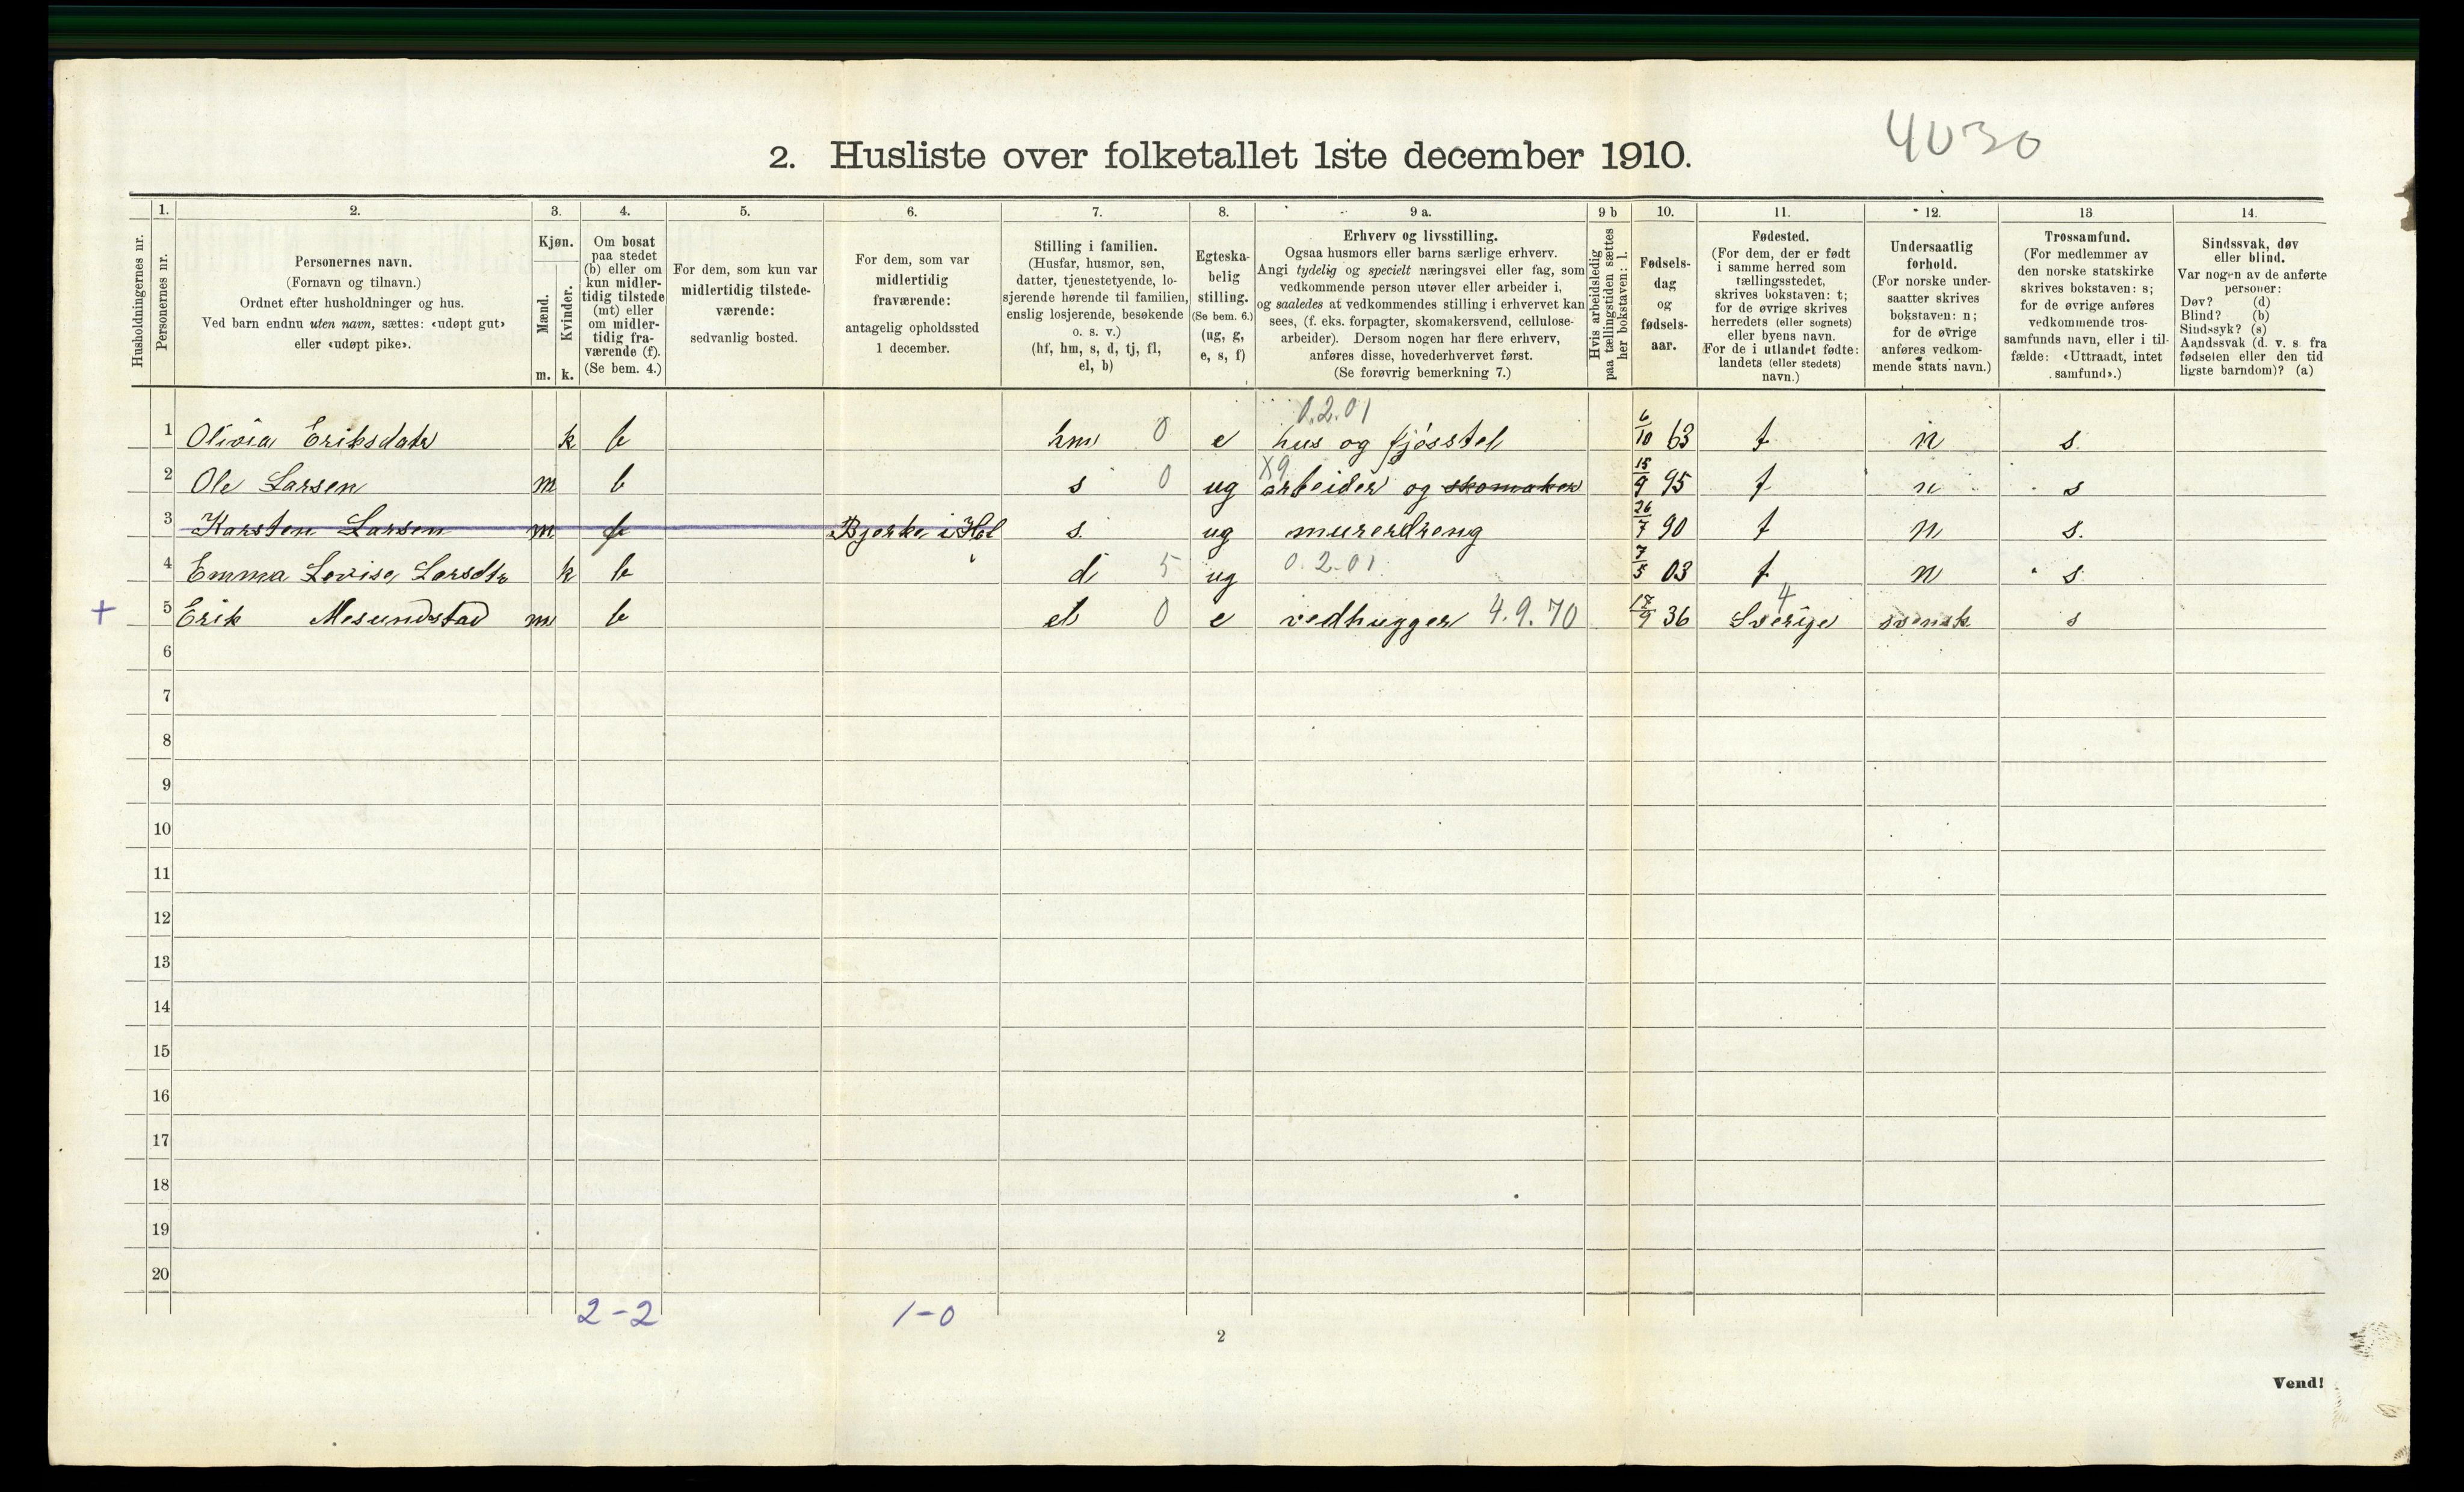 4030
2. Husliste over folketallet 1ste december 1910.
Husholdningernes nr.
1. Personernes nr.
2. Personernes navn.
(Fornavn og tilnavn.)
Ordnet efter husholdninger og hus.
Ved barn endnu uten navn, sættes: «udøpt gut»
eller «udøpt pike».
3. Kjøn.
Mænd. Kvinder.
m. k.
4. Om bosat
paa stedet
(b) eller om
kun midler-
tidig tilstede
(mt) eller
om midler-
tidig fra-
værende (f).
(Se bem. 4.)
5. For dem, som kun var
midlertidig tilstede-
værende:
sedvanlig bosted.
6. For dem, som var
midlertidig
fraværende:
antagelig opholdssted
1 december.
7. Stilling i familien.
(Husfar, husmor, søn,
datter, tjenestetyende, lo-
sjerende hørende til familien,
enslig losjerende, besøkende
o. s. v.)
(hf, hm, s, d, tj, fl,
el, b)
8. Egteska-
belig
stilling.
(Se bem. 6.)
(ug, g,
e, s, f)
9 a. Erhverv og livsstilling.
Ogsaa husmors eller barns særlige erhverv.
Angi tydelig og specielt næringsvei eller fag, som
vedkommende person utøver eller arbeider i,
og saaledes at vedkommendes stilling i erhvervet kan
sees, (f. eks. forpagter, skomakersvend, cellulose-
arbeider). Dersom nogen har flere erhverv,
anføres disse, hovederhvervet først.
(Se forøvrig bemerkning 7.)
9 b Hvis arbeidsledig
paa tællingstiden sættes
her bokstaven: l.
10. Fødsels-
dag
og
fødsels-
aar.
11. Fødested.
(For dem, der er født
i samme herred som
tællingsstedet,
skrives bokstaven: t;
for de øvrige skrives
herredets (eller sognets)
eller byens navn.
For de i utlandet fødte:
landets (eller stedets)
navn.)
12. Undersaatlig
forhold.
(For norske under-
saatter skrives
bokstaven: n;
for de øvrige
anføres vedkom-
mende stats navn.)
13 Trossamfund.
(For medlemmer av
den norske statskirke
skrives bokstaven: s;
for de øvrige anføres
vedkommende tros-
samfunds navn, eller i til-
fælde: «Uttraadt, intet
samfund».)
14. Sindssvak, døv
eller blind.
Var nogen av de anførte
personer:
Døv? (d)
Blind? (b)
Sindssyk? (s)
Aandssvak (d. v. s. fra
fødselen eller den tid
ligste barndom)? (a)
0.2.01
1 Olivia Eriksdatr k b hm 0 e hus og fjösstel 6/10 63 t n s
2 Ole Larsen m b s 0 ug X9 arbeider og skomaker 15/9 95 t n s
3 Karsten Larsen m f Bjerke i Hol s. ug murerdreng 26/7 90 t n s.
4 Emma Lovise Larsdtr k b d 5 ug 0.2.01 7/5 03 t n s
+ 5 Erik Mesundstad m b el 0 e vedhugger 4.9.70 17/9 36 4 Sverige svensk s
6
7
8
9
10
11
12
13
14
15
16
17
18
19
20
2-2 1-0
2
Vend!